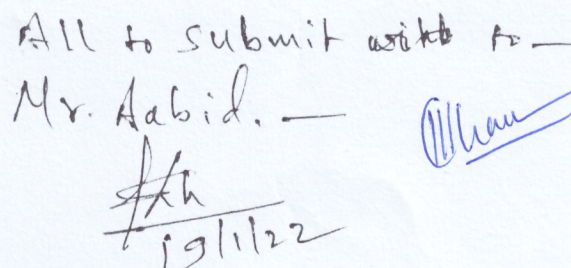 All to submit with to —
Mr. Aabid. —
19/1/22